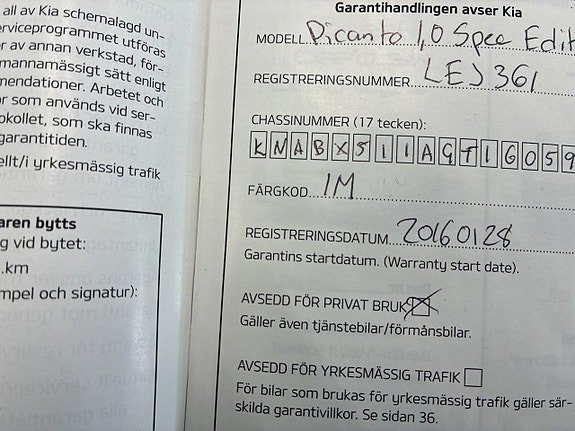 all av Kia schemalagd un-
rviceprogrammet utföras
er av annan verkstad, för-
mannamässigt sätt enligt
mendationer. Arbetet och
or som används vid ser-
okollet, som ska finnas
garantitiden.
ellt/i yrkesmässig trafik
aren bytts
g vid bytet:
.km
mpel och signatur):
Garantihandlingen avser Kia
MODELL Picanto 1,0 Spec Edit
REGISTRERINGSNUMMER LEJ361
CHASSINUMMER (17 tecken):
KNABX511AGT16059
FÄRGKOD 1M
REGISTRERINGSDATUM 20160128
Garantins startdatum. (Warranty start date).
AVSEDD FÖR PRIVAT BRUK
Gäller även tjänstebilar/förmånsbilar.
AVSEDD FÖR YRKESMÄSSIG TRAFIK
För bilar som brukas för yrkesmässig trafik gäller sär-
skilda garantivillkor. Se sidan 36.